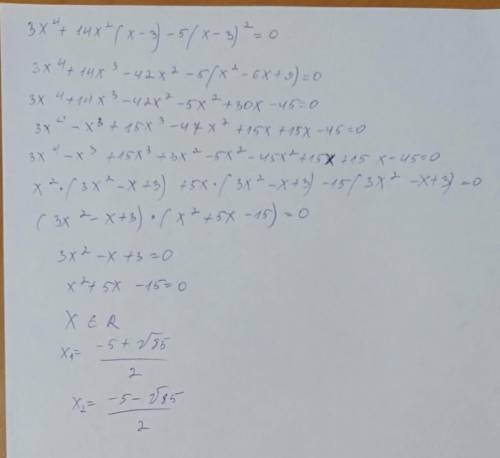 3x⁴ + 14x² (x - 3) - 5 (x - 3)² = 0
3x⁴ + 14x³ - 42x² - 5(x² - 6x + 9) = 0
3x⁴ + 14x³ - 42x² - 5x² + 30x - 45 = 0
3x⁴ - x³ + 15x³ - 47x² + 15x + 15x - 45 = 0
3x⁴ - x³ + 15x³ + 3x² - 5x² - 45x² + 15x + 15x - 45 = 0
x² · (3x² - x + 3) + 5x · (3x² - x + 3) - 15 (3x² - x + 3) = 0
(3x² - x + 3) · (x² + 5x - 15) = 0
3x² - x + 3 = 0
x² + 5x - 15 = 0
X ∈ R
x₁ = (-5 + √85) / 2
x₂ = (-5 - √85) / 2